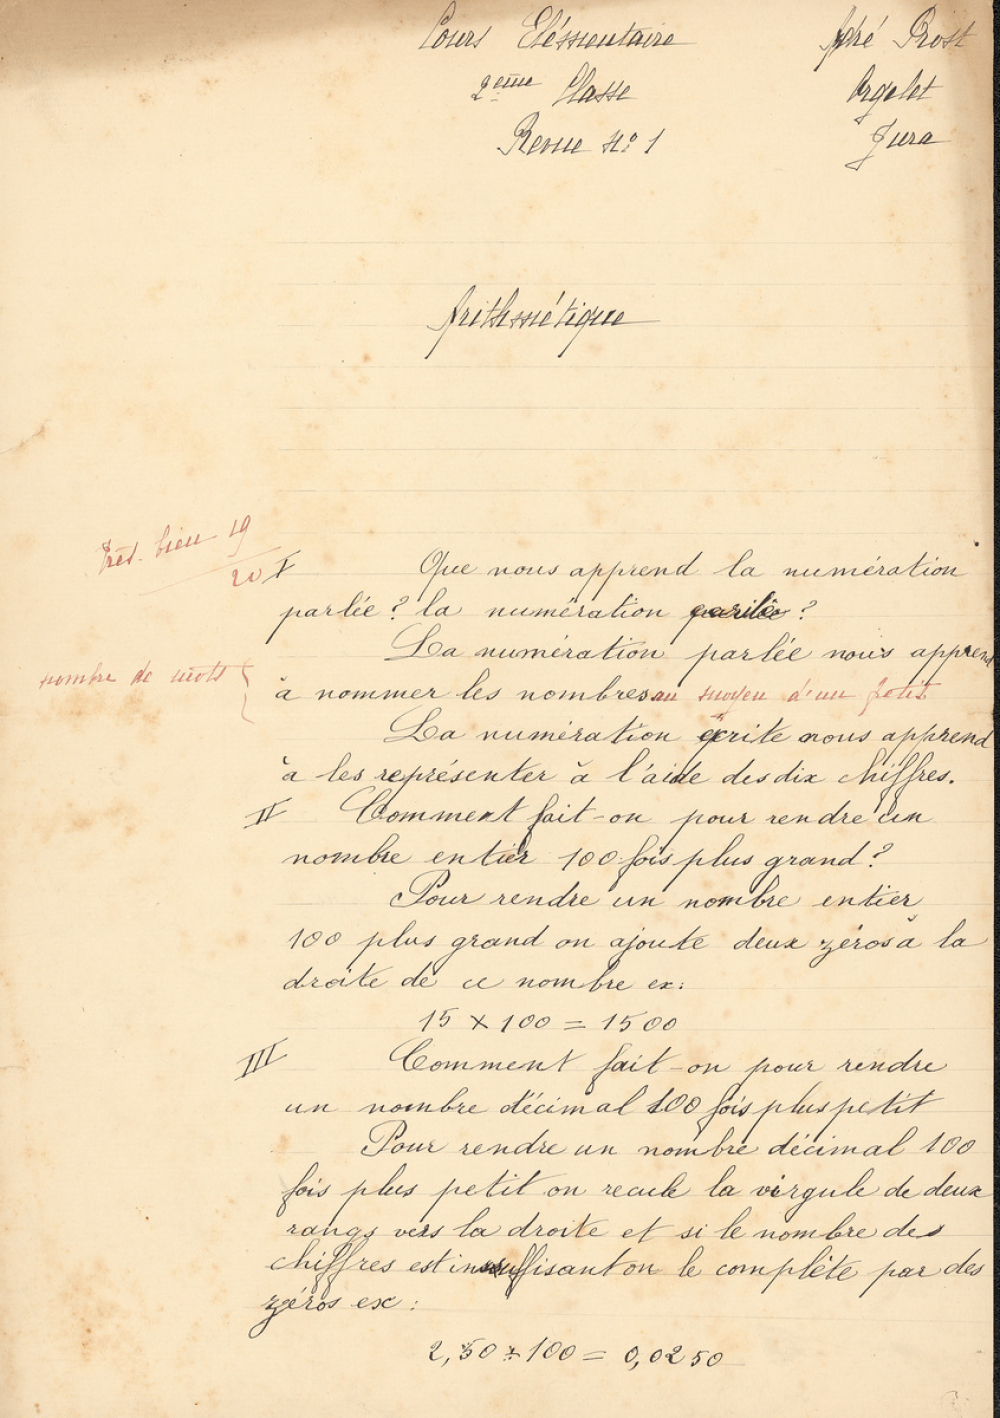 Cours Eléssentaire
2ème Classe
Revue N: 1
André Prost
Orgelet
Jura
Arithmétique
Très. bien 19
20
I Que nous apprend la numération
parlée? la numération écrite?
La numération parlée nous apprend
nombre de mots { à nommer les nombres au moyen d'un petit
La numération écrite nous apprend
à les représenter à l'aide des dix chiffres.
II Comment fait-on pour rendre un
nombre entier 100 fois plus grand?
Pour rendre un nombre entier
100 plus grand on ajoute deux zéros à la
droite de ce nombre ex:
15 × 100 = 1500
III Comment fait-on pour rendre
un nombre décimal 100 fois plus petit
Pour rendre un nombre décimal 100
fois plus petit on recule la virgule de deux
rangs vers la droite et si le nombre des
chiffres est insuffisant on le complète par des
zéros ex:
2,50 : 100 = 0,0250